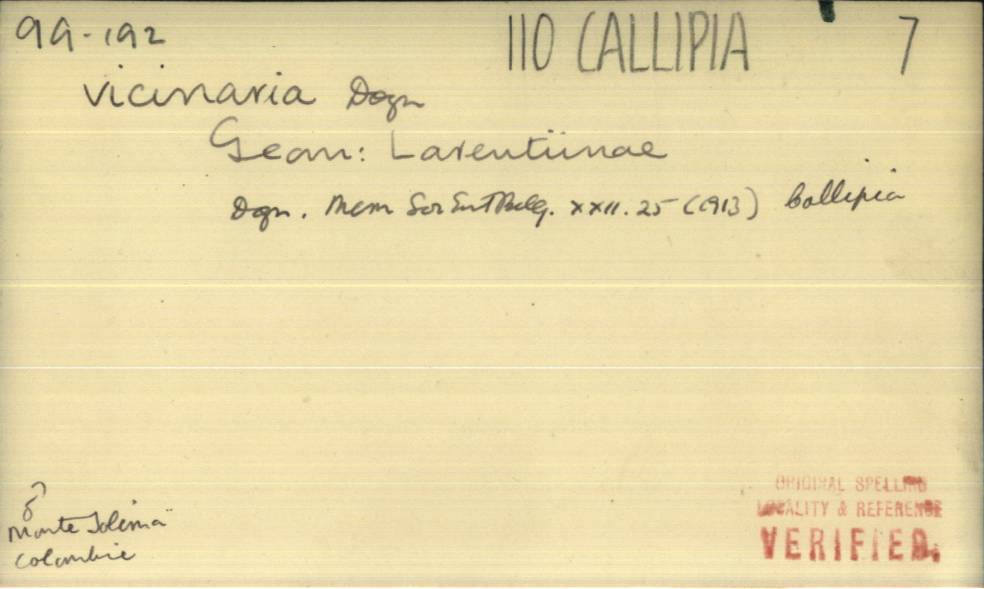 99-192 110 CALLIPIA 7
vicinaria Dogn
Geom: Larentiinae
Dgn. Mem Soc Ent Belg. XXII. 25 (1913) Callipia
♂
Monte Tolima
Colombie
ORIGINAL SPELLING
LOCALITY & REFERENCE
VERIFIED.